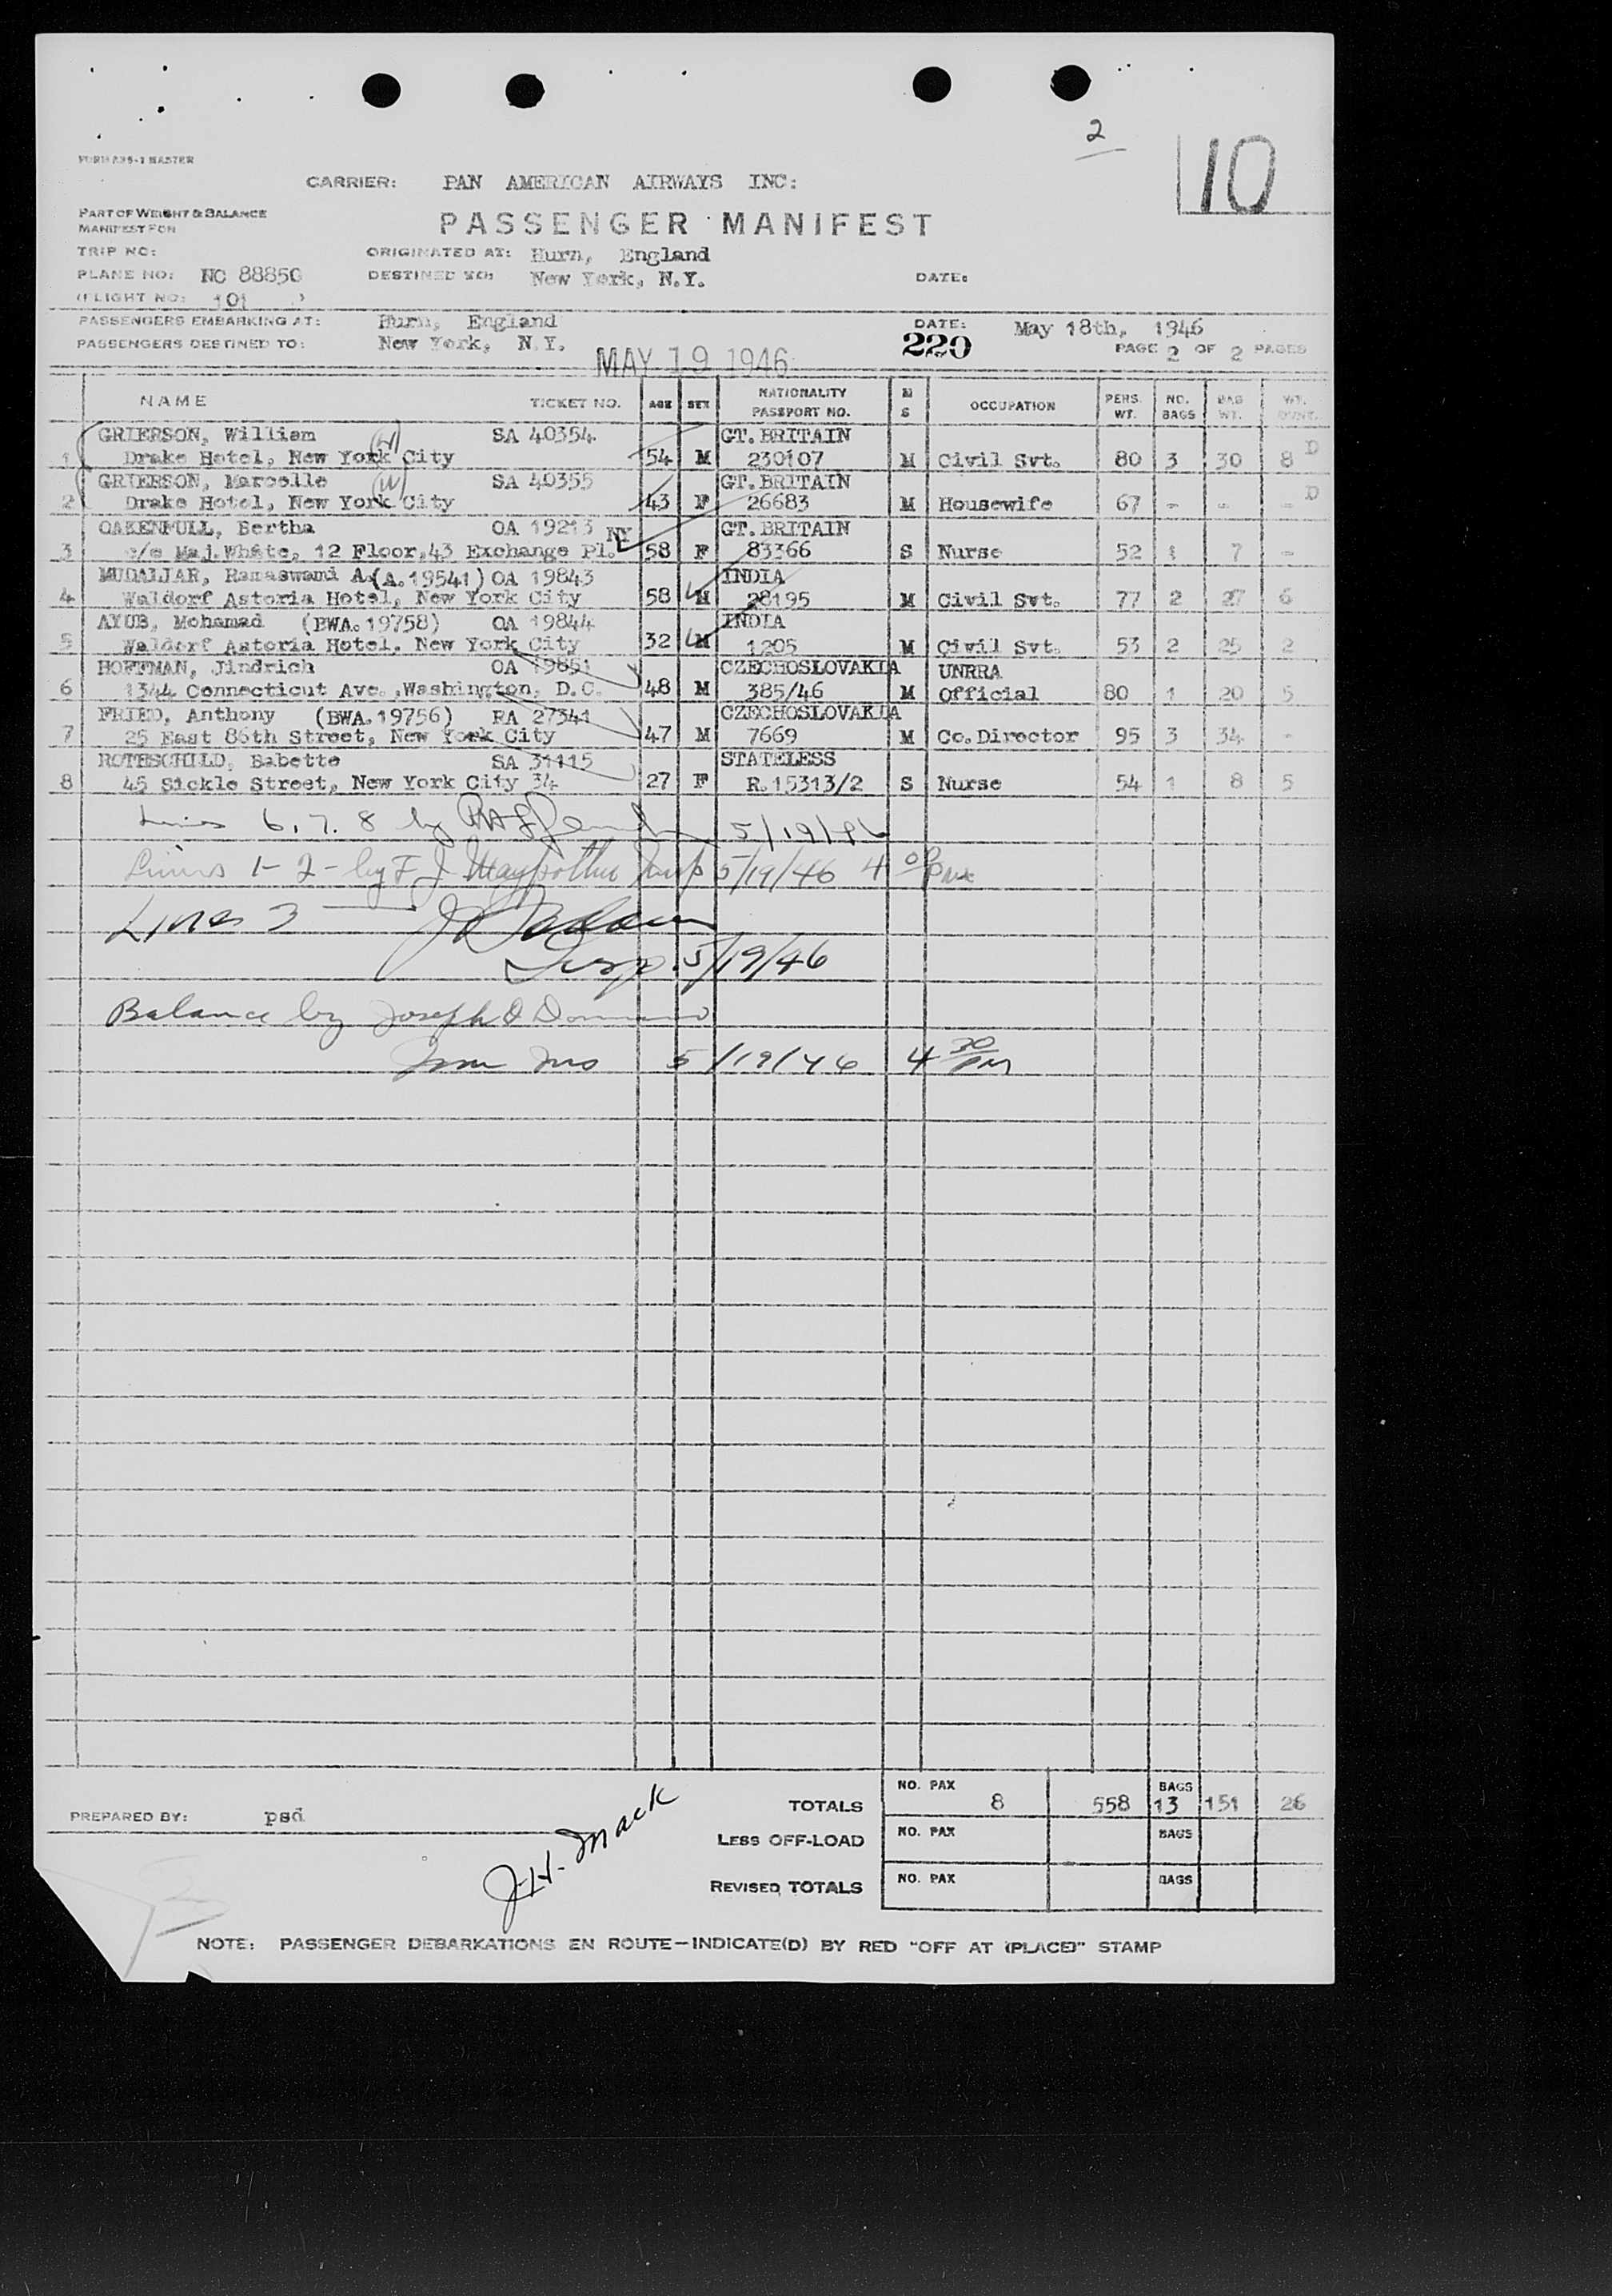 2
10
FORM ARS-1 MASTER
CARRIER: PAN AMERICAN AIRWAYS INC:
PART OF WEIGHT & BALANCE
MANIFEST FOR
PASSENGER MANIFEST
TRIP NO: ORIGINATED AT: Hurn, England
PLANE NO: NC 88850 DESTINED TO: New York, N.Y. DATE:
(FLIGHT NO: 101 )
PASSENGERS EMBARKING AT: Hurn, England DATE: May 18th, 1946
PASSENGERS DESTINED TO: New York, N.Y. MAY 19 1946 220 PAGE 2 OF 2 PAGES
NAME TICKET NO. AGE SEX NATIONALITY PASSPORT NO. M S OCCUPATION PERS. WT. NO. BAGS BAG WT. WT.
GRIERSON, William (H) SA 40354 GT.BRITAIN
1 Drake Hotel, New York City 54 M 230107 M Civil Svt. 80 3 30 8 D
GRIERSON, Marcelle (W) SA 40355 GT.BRITAIN
2 Drake Hotel, New York City 43 F 26683 M Housewife 67 - - - D
OAKENFULL, Bertha OA 19213 NY GT.BRITAIN
3 c/o Maj.White, 12 Floor,43 Exchange Pl. 58 F 83366 S Nurse 52 1 7 -
MUDALJAR, Ramaswami A.(A.19541) OA 19843 INDIA
4 Waldorf Astoria Hotel, New York City 58 M 28195 M Civil Svt. 77 2 27 6
AYUB, Mohamad (BWA.19758) OA 19844 INDIA
5 Waldorf Astoria Hotel. New York City 32 M 1205 M Civil Svt. 53 2 25 2
HOFFMAN, Jindrich OA 19851 CZECHOSLOVAKIA UNRRA
6 1344 Connecticut Ave.,Washington, D.C. 48 M 385/46 M Official 80 1 20 5
FRIED, Anthony (BWA.19756) RA 27341 CZECHOSLOVAKIA
7 25 East 86th Street, New York City 47 M 7669 M Co.Director 95 3 34 -
ROTHSCHILD, Babette SA 31115 STATELESS
8 45 Sickle Street, New York City 34 27 F R.15313/2 S Nurse 54 1 8 5
Lines 6, 7. 8 by 5/19/46
Lines 1-2- by F J Insp 5/19/46 4 00 PM
Lines 3
Insp. 5/19/46
Balance by Joseph
Imm Ins 5/19/46 4 30 PM
TOTALS NO. PAX 8 558 BAGS 13 151 26
PREPARED BY: psd
LESS OFF-LOAD NO. PAX BAGS
J.H. Mack
REVISED TOTALS NO. PAX BAGS
NOTE: PASSENGER DEBARKATIONS EN ROUTE—INDICATE(D) BY RED "OFF AT (PLACE)" STAMP